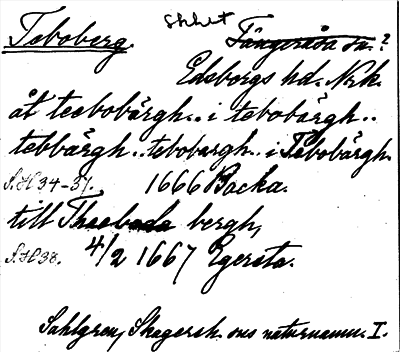 Skhet
Teboberg. Tängeråsa sn.?
Edsbergs hd. Nrk.
åt teebobärgh.. i tebobärgh..
tebbärgh.. tebobargh.. i Tebobärgh.
S.H34-37. 1666 Backa.
till Theeboda bergh,
S.H38. 4/2 1667 Egersta.
Sahlgren, Skagersh. ons naturnamn. I.